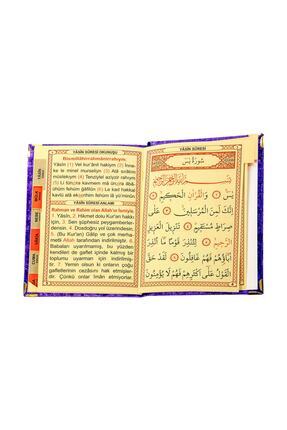 YÂSÎN SÛRESİ OKUNUŞU
Bismillâhirrahmânirrahıym.
Yâsîn (1) Vel kur'ânil hakiym (2) İnne-
ke le minel murseliyn (3) Alâ sırâtım
müstekıym (4) Tenziylel aziyzir rahıym
(5) Li tünzira kavmem mâ ünzira âbâ-
ühüm fehüm ğâfilûn (6) Le kad hakkal
kavlü alâ ekserihim fehüm lâ yü'minûn
YÂSÎN SÛRESİ ANLAMI
Rahman ve Rahim olan Allah'ın ismiyle.
1. Yâsîn, 2. Hikmet dolu Kur'an hakkı
için, 3. Sen şüphesiz peygamberler-
densin. 4. Dosdoğru yol üzerindesin.
5. (Bu Kur'an) Gâlip ve çok merha-
metli Allah tarafından indirilmiştir. 6.
babaları uyarılmamış, bu yüzden
kendileri de gaflet içinde kalmış bir
toplumu uyarman için indirilmiş-
tir. 7. Yemin olsun ki onların çoğu
gafletlerinin cezasını hak etmişler-
dir. Çünkü onlar îman etmiyorlar.
YÂSÎN SÛRESİ
سُورَةُ يٰسٓ
يٰسٓ ﴿١﴾ وَالْقُرْاٰنِ الْحَكٖيمِ ﴿٢﴾
اِنَّكَ لَمِنَ الْمُرْسَلٖينَ ﴿٣﴾ عَلٰى
صِرَاطٍ مُسْتَقٖيمٍ ﴿٤﴾ تَنْزٖيلَ الْعَزٖيزِ
الرَّحٖيمِ ﴿٥﴾ لِتُنْذِرَ قَوْمًا مَٓا اُنْذِرَ
اٰبَٓاؤُهُمْ فَهُمْ غَافِلُونَ ﴿٦﴾ لَقَدْ حَقَّ
الْقَوْلُ عَلٰٓى اَكْثَرِهِمْ فَهُمْ لَا يُؤْمِنُونَ